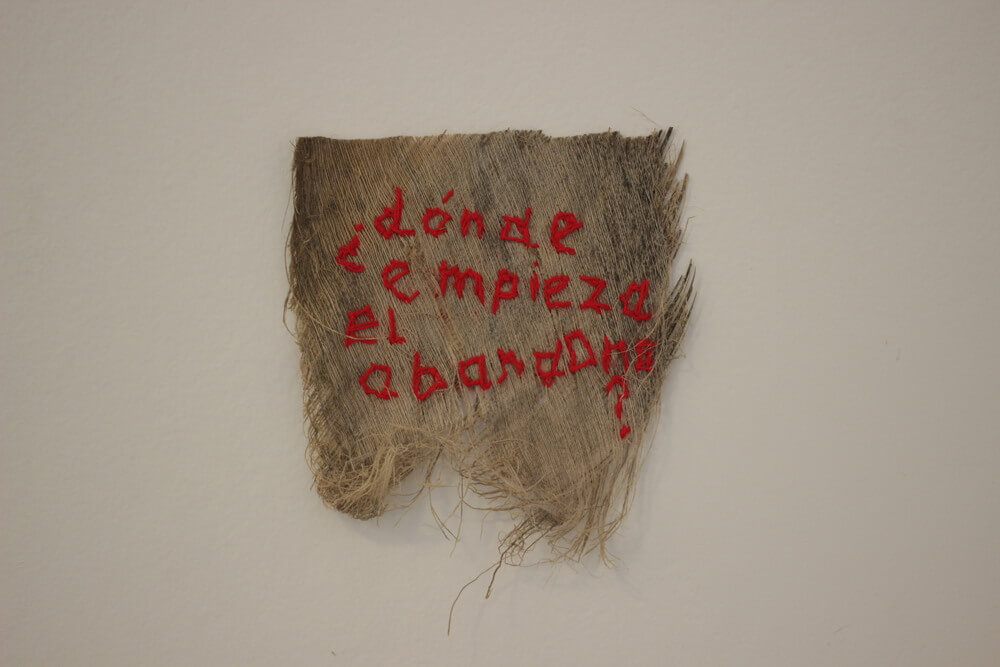 ¿dónde
empieza
EL
abandono
?